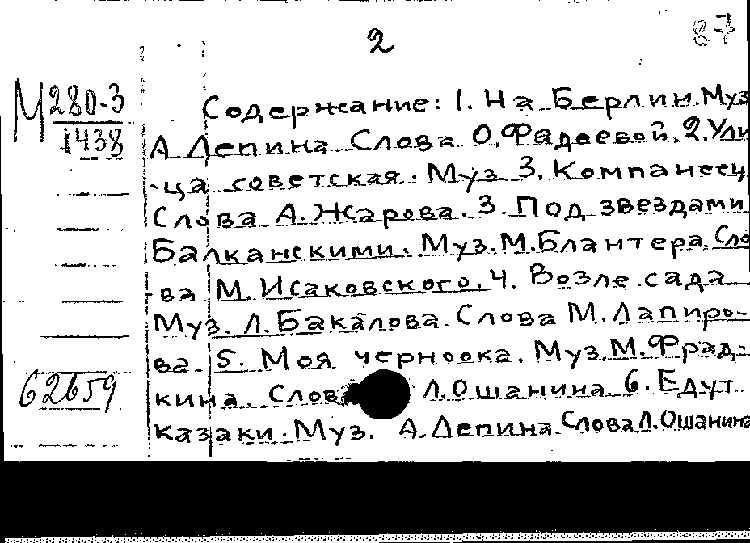 2
87
М280-3
1438
Содержание: 1. На Берлин. Муз
А Лепина Слова О. Фадеевой. 2. Ули
-ца советская. Муз З. Компанеец
Слова А. Жарова. 3. Под звездами
Балканскими. Муз. М. Блантера. Сло
-ва М. Исаковского. 4. Возле сада
Муз. Л. Бакалова. Слова М. Лапиро-
ва. 5. Моя черноока. Муз. М. Фрад-
кина. Слова Л. Ошанина 6. Едут
казаки. Муз. А. Лепина. Слова Л. Ошанина
62659